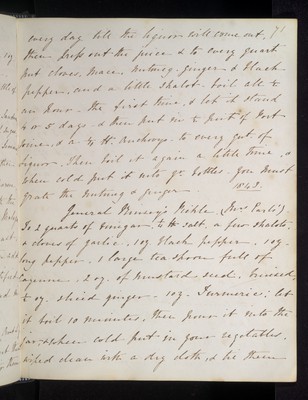 every day till the liquor will come out,
then press out the juice & to every quart
put cloves, mace, nutmeg, ginger & black
pepper, and a little shalot. boil all ½
an hour the first time, & let it stand
4 or 5 days & then put in ½ pint of Port
wine, & a ¼ lb. anchovys to every qut of
liquor. Then boil it again a little time, &
when cold put it into qt bottles. you must
grate the nutmeg & ginger.
1842.
General Pickle (Mrs )
To 2 quarts of vinegar, ½ lb salt, a few shalots,
a clove of garlic, 1 oz. black pepper, 1 oz.
long pepper, 1 large tea spoon full of
cayenne, 2 oz. of mustard seed, bruised,
oz sliced ginger, 1 oz. Turmeric; let
it boil 10 minutes, then pour it into the
jar, & when cold put in your vegetables,
wiped clean with a dry cloth, & let them